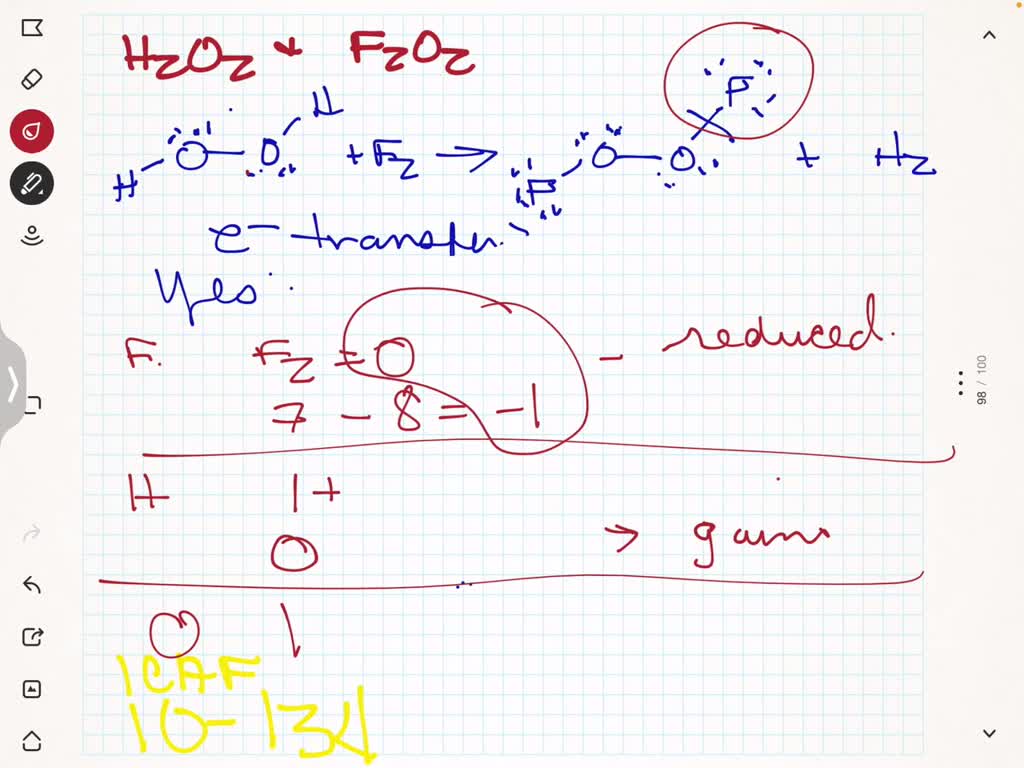 H2O2 + F2O2
H O O H + F2 → F O O F + H2
e⁻ transfer.
Yes.
F. F2 = 0 - reduced.
7 - 8 = -1
H 1+
0 → gains
O
1CAF
10-134
98 / 100